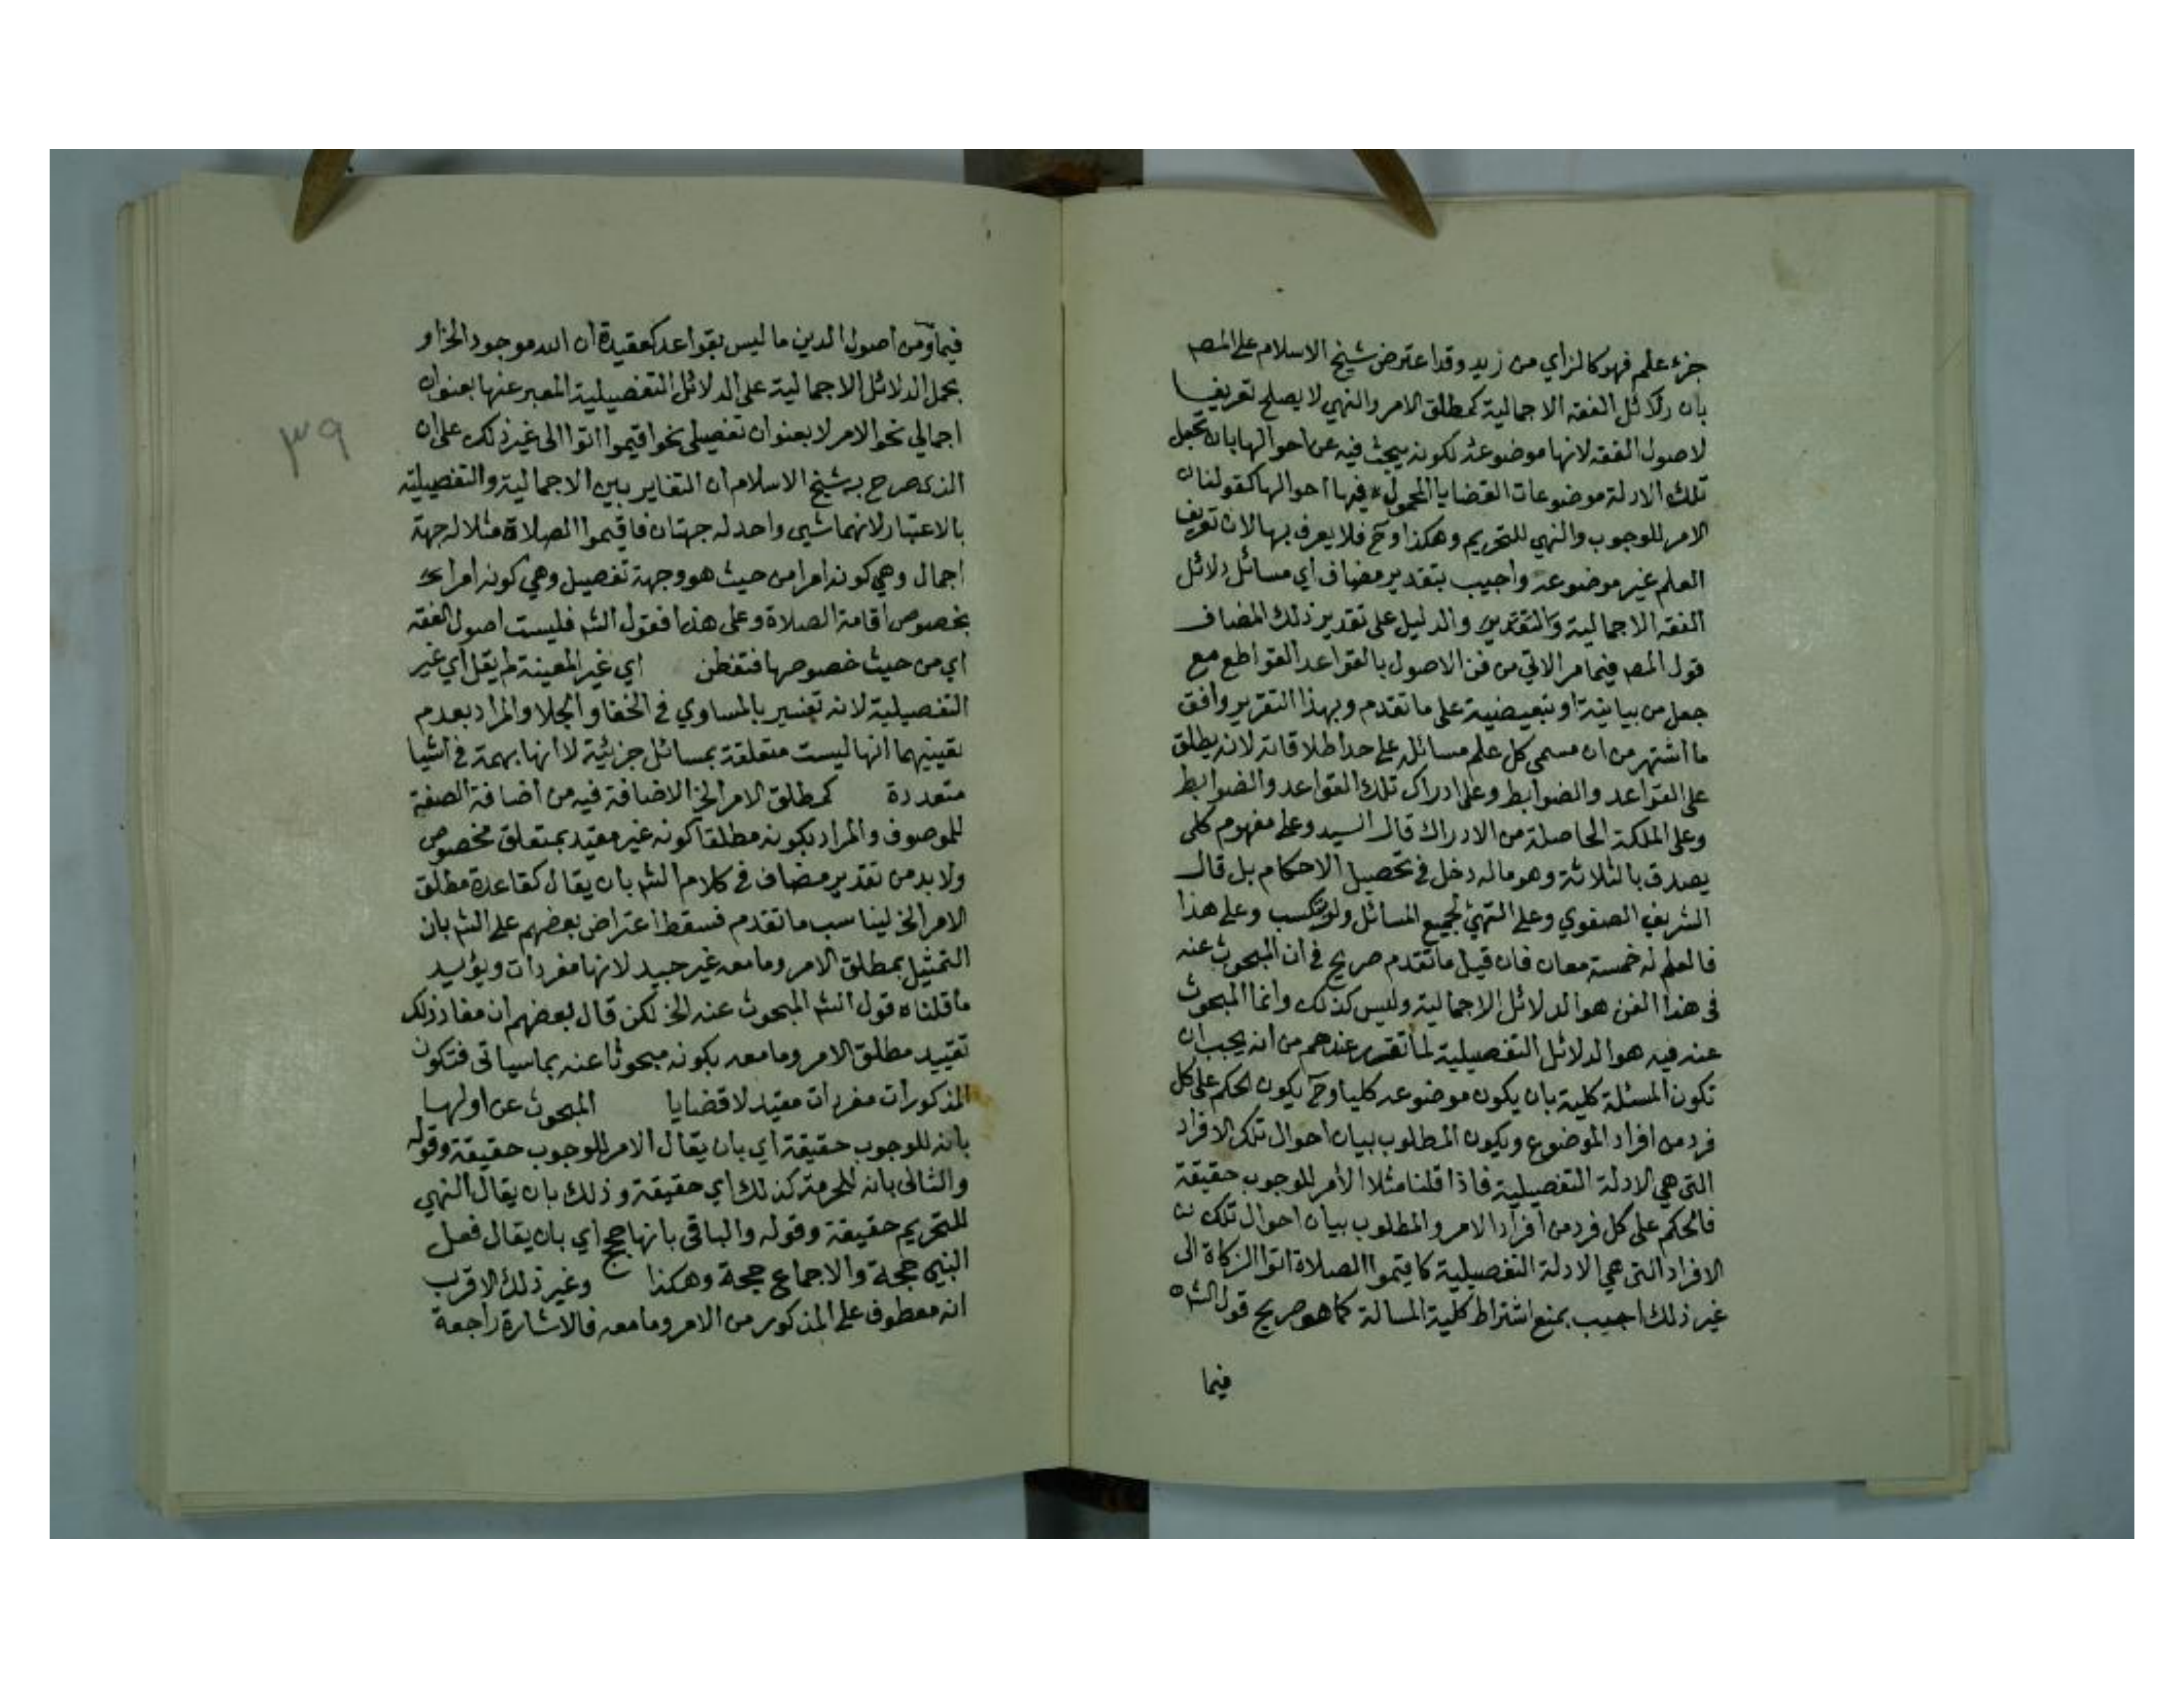 جزء علم فهو كالزاي من زيد وقد اعترض شيخ الاسلام على المصـ
بان دلائل الفقه الاجمالية كمطلق الامر والنهي لا يصلح تعريفا
لاصول الفقه لانها موضوعه لكونه يبحث فيه عن احوالها بان تجعل
تلك الادلة موضوعات القضايا المحمول فيها احوالها كقولنا ان
الامر للوجوب والنهي للتحريم وهكذا وح فلا يعرف بها لان تعريف
العلم غير موضوعه واجيب بتقدير مضاف اي مسائل دلائل
الفقه الاجمالية والدليل على تقدير ذلك المضاف
قول المصـ فيما مر الاتي من فن الاصول بالقواعد القواطع مع
جعل من بيانية او تبعيضية على ما تقدم وبهذا التقرير وافق
ما اشتهر من ان مسمى كل علم مسائله على حد اطلاقاته لانه يطلق
على القواعد والضوابط وعلى ادراك تلك القواعد والضوابط
وعلى الملكة الحاصلة من الادراك قال السيد وعلى مفهوم كلى
يصدق بالثلاثة وهو ماله دخل في تحصيل الاحكام بل قال
الشريف الصفوي وعلى التهيئ لجميع المسائل وعلى هذا
فالعلم له خمسة معان فان قيل ما تقدم صريح في ان المبحوث عنه
فى هذا الفن هو الدلائل الاجمالية وليس كذلك وانما المبحوث
عنه فيه هو الدلائل التفصيلية لما تقرر عندهم من انه يجب ان
تكون المسئلة كلية بان يكون موضوعه كليا وح يكون الحكم على كل
فرد من افراد الموضوع ويكون المطلوب بيان احوال تلك الافراد
التى هي الادلة التفصيلية فاذا قلنا مثلا الأمر للوجوب حقيقة
فالحكم على كل فرد من افراد الامر والمطلوب بيان احوال تلك
الافراد التى هي الادلة التفصيلية كاقيموا الصلاة اتوا الزكاة الى
غير ذلك اجيب بمنع اشتراط كلية المسالة كما هو صريح قول الشـ
فيما
فيما ومن اصول الدين ما ليس بقواعد كعقيدة ان الله موجود الخ او
بحمل الدلائل الاجمالية على الدلائل التفصيلية المعبر عنها بعنوان
اجمالي نحو الامر لا بعنوان تفصيلى نحو اقيموا اتوا الى غير ذلك على ان
الذى صرح به شيخ الاسلام ان التغاير بين الاجمالية والتفصيلية
بالاعتبار لانهما شيى واحد له جهتان فاقيموا الصلاة مثلا له جهة
اجمال وهي كونه امرا من حيث هو وجهة تفصيل وهي كونه امرا
بخصوص اقامة الصلاة وعلى هذا فقول الشـ فليست اصول الفقه
اي من حيث خصوصها فتفطن اي غير المعينة لم يقل اي غير
التفصيلية لانه تفسير بالمساوي في الخفا والجلا والمراد بعدم
تعيينهما انها ليست متعلقة بمسائل جزئية لا انها بهمة في اشيا
متعددة كمطلق الامر الخ الاضافة فيه من اضافة الصفة
للموصوف والمراد بكونه مطلقا كونه غير مقيد بمتعلق مخصوص
ولا بد من تقدير مضاف في كلام الشـ بان يقال كقاعدة مطلق
الامر الخ ليناسب ما تقدم فسقط اعتراض بعضهم على الشـ بان
التمثيل بمطلق الامر وما معه غير جيد لانها مفردات ويؤيد
ما قلناه قول الشـ المبحوث عنه الخ لكن قال بعضهم ان مفاد ذلك
تقييد مطلق الامر وما معه بكونه مبحوثا عنه بما سياتى فتكون
المذكورات مفردات مقيد لا قضايا المبحوث عن اولها
بانه للوجوب حقيقة اي بان يقال الامر للوجوب حقيقة وقوله
والثانى بانه للحرمة كذلك اي حقيقة وذلك بان يقال النهي
للتحريم حقيقة وقوله والباقى بانها حجج اي بان يقال فعل
النبى حجة والاجماع حجة وهكذا وغير ذلك الاقرب
انه معطوف على المذكور من الامر وما معه فالاشارة راجعة
٣٩